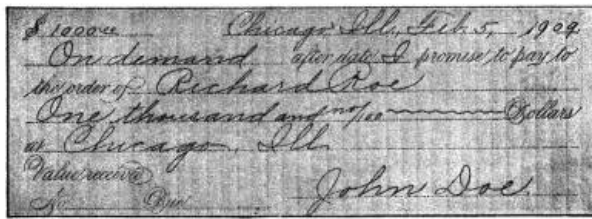 $1000.00 Chicago Ill., Feb 5, 1909
On demand after date I promise to pay to
the order of Richard Roe
One thousand and no/100 Dollars
at Chicago, Ill.
Value received
No. Due John Doe